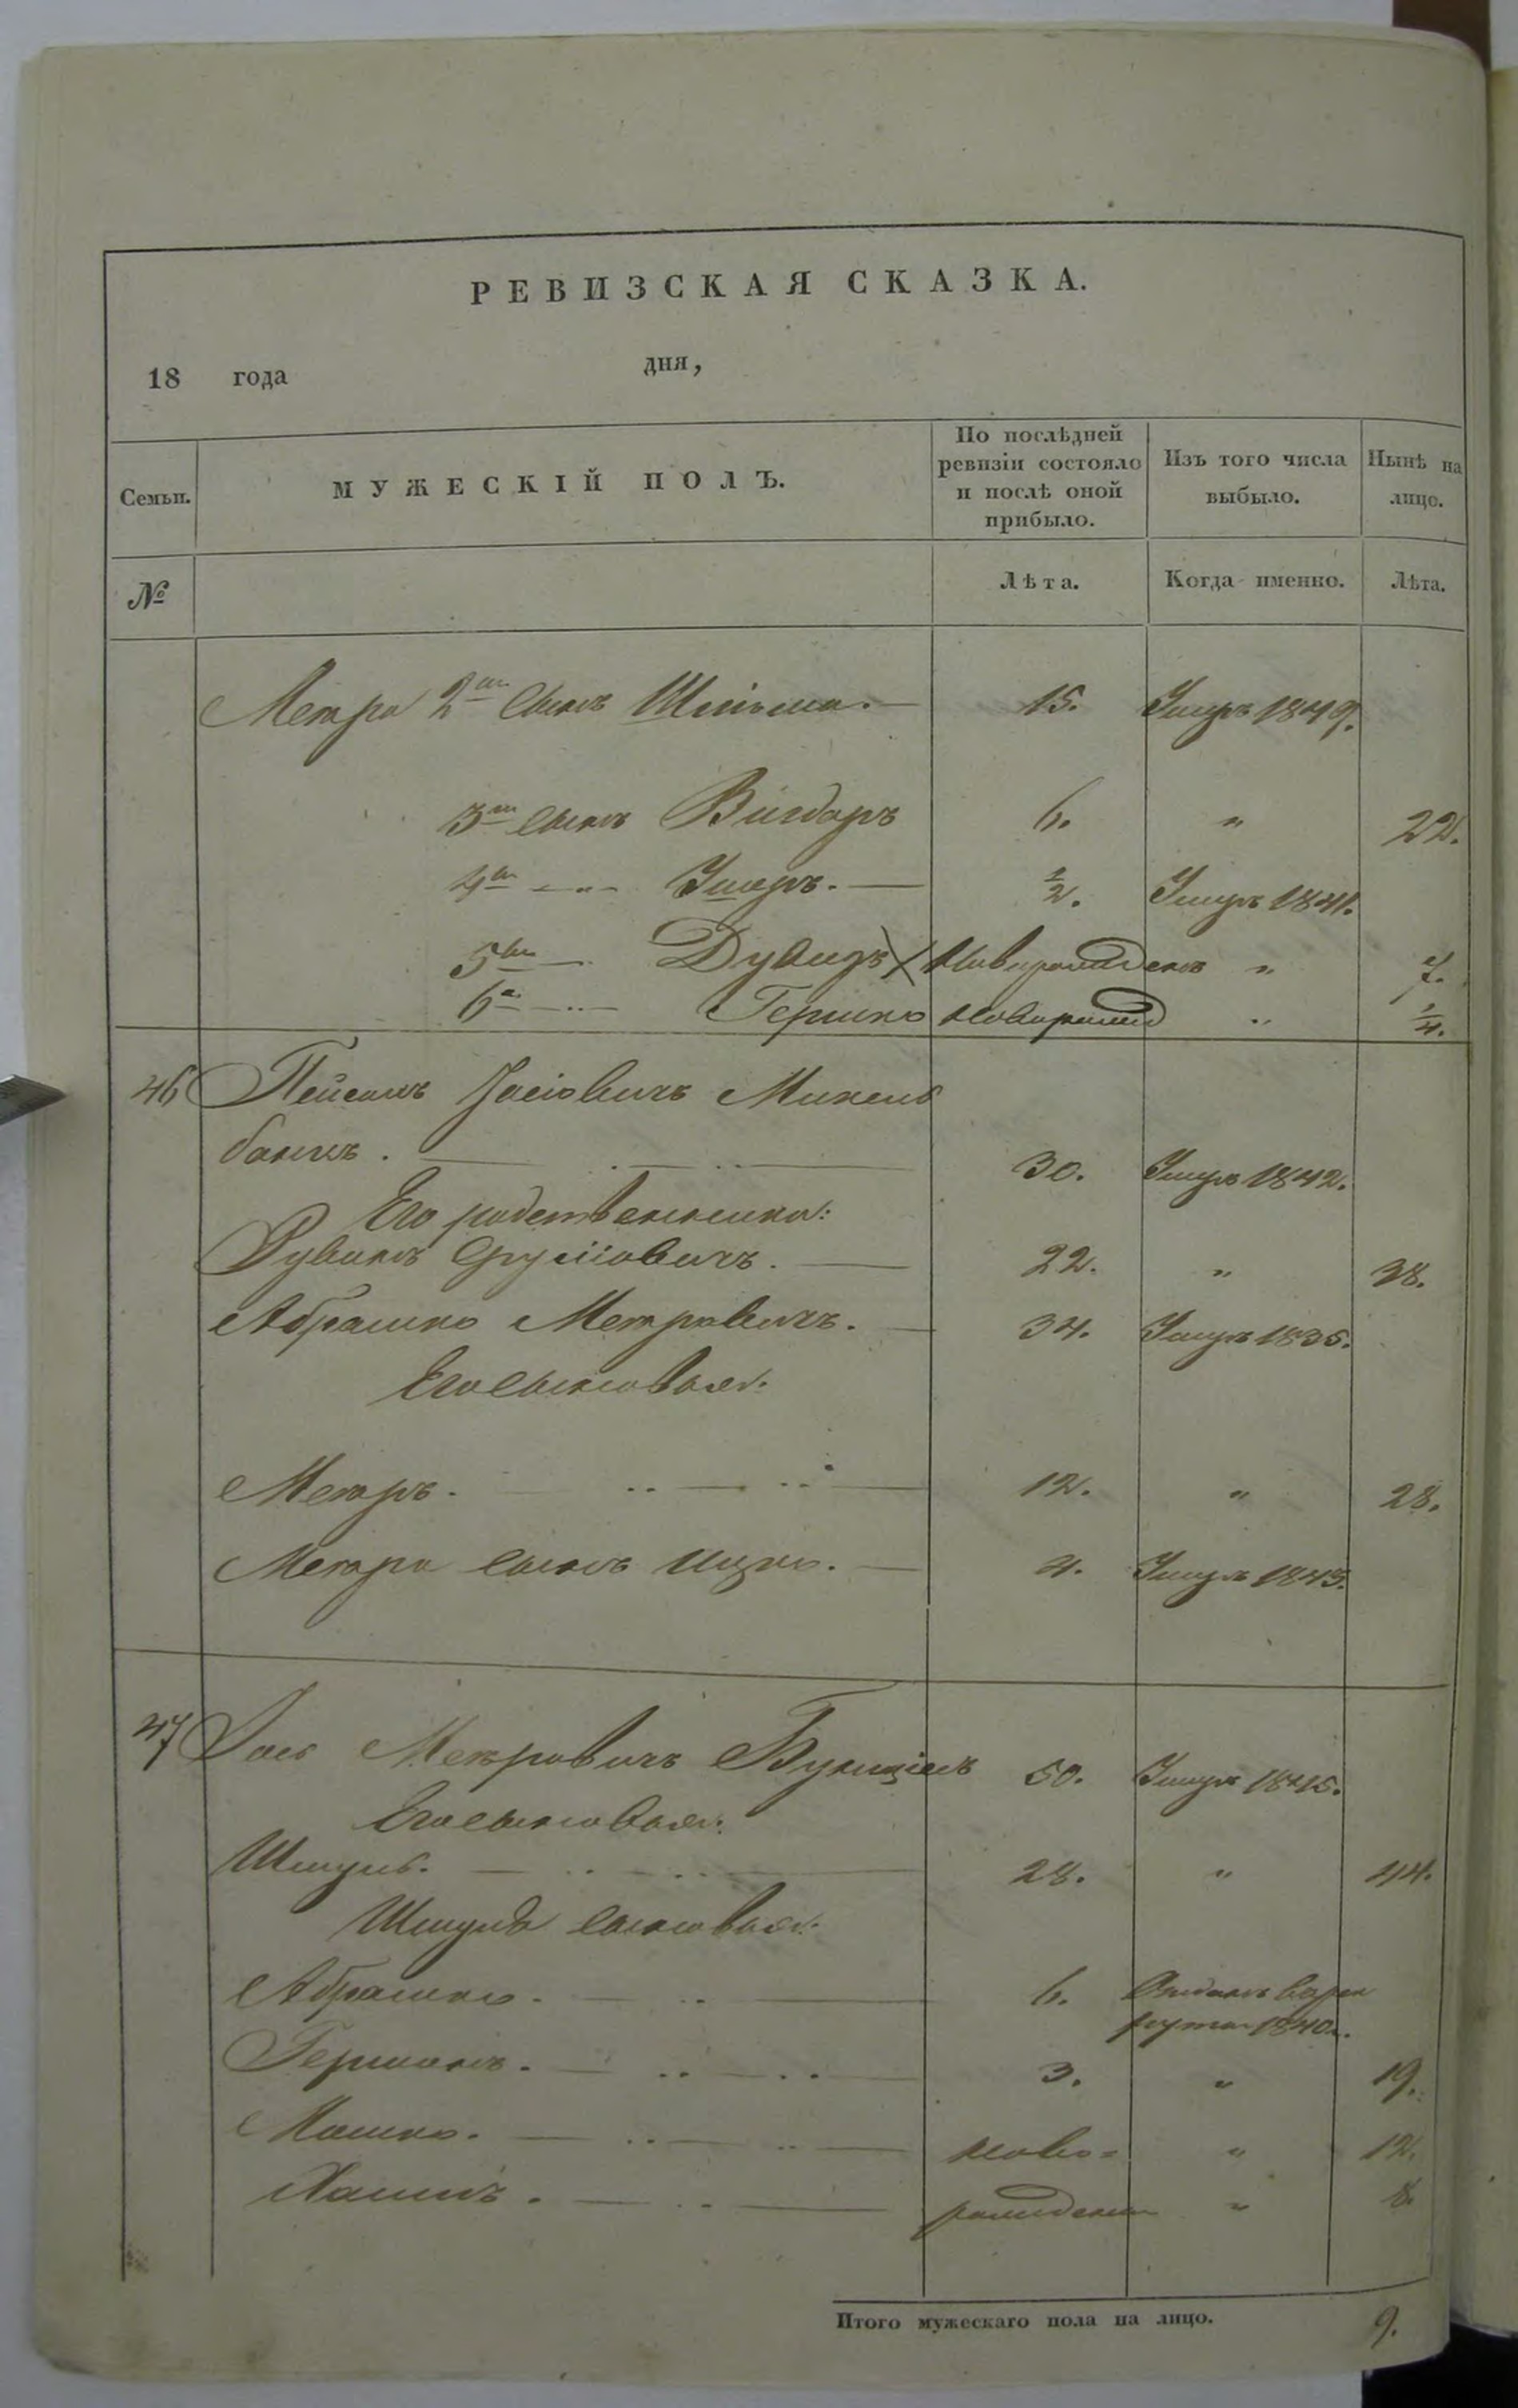 РЕВИЗСКАЯ СКАЗКА.
18 года дня,
Семьи. МУЖЕСКІЙ ПОЛЪ. По послѣдней ревизіи состояло и послѣ оной прибыло. Изъ того числа выбыло. Нынѣ на лицо.
№ Лѣта. Когда именно. Лѣта.
2й сынъ 15. Умеръ 1849.
3й сынъ Вигдоръ 6. " 22.
4й " ½. Умеръ 1841.
5й Дувидъ Новорожденъ " 7.
6й Гершко новорожд " ¼.
46 Пейсахъ Іосіовичъ
30. Умеръ 1842.
Его родственники:
Рувинъ Сруліовичъ. 22. " 38.
Абрашко 34. Умеръ 1835.
Его сыновья:
12. " 28.
сынъ Ицко. 4. Умеръ 1843.
47 50. Умеръ 1845.
Его сыновья:
Шмуль. 28. " 44.
Шмуля сыновья:
Абрашко. 6. Отданъ въ рек
руты 1840.
Гершонъ. 3. " 19.
Мошко. ново= " 12.
Хаимъ. рожденн " 8.
Итого мужескаго пола на лицо. 9.